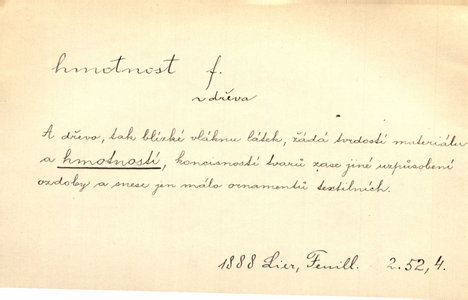 hmotnost f.
z dřeva
A dřevo, tak blízké vláknu látek, žádá tvrdostí materiálu
a hmotností, koncisností tvarů zase jiné uzpůsobení
ozdoby a snese jen málo ornamentů textilních.
1888 Lier, Feuill. 2.52,4.